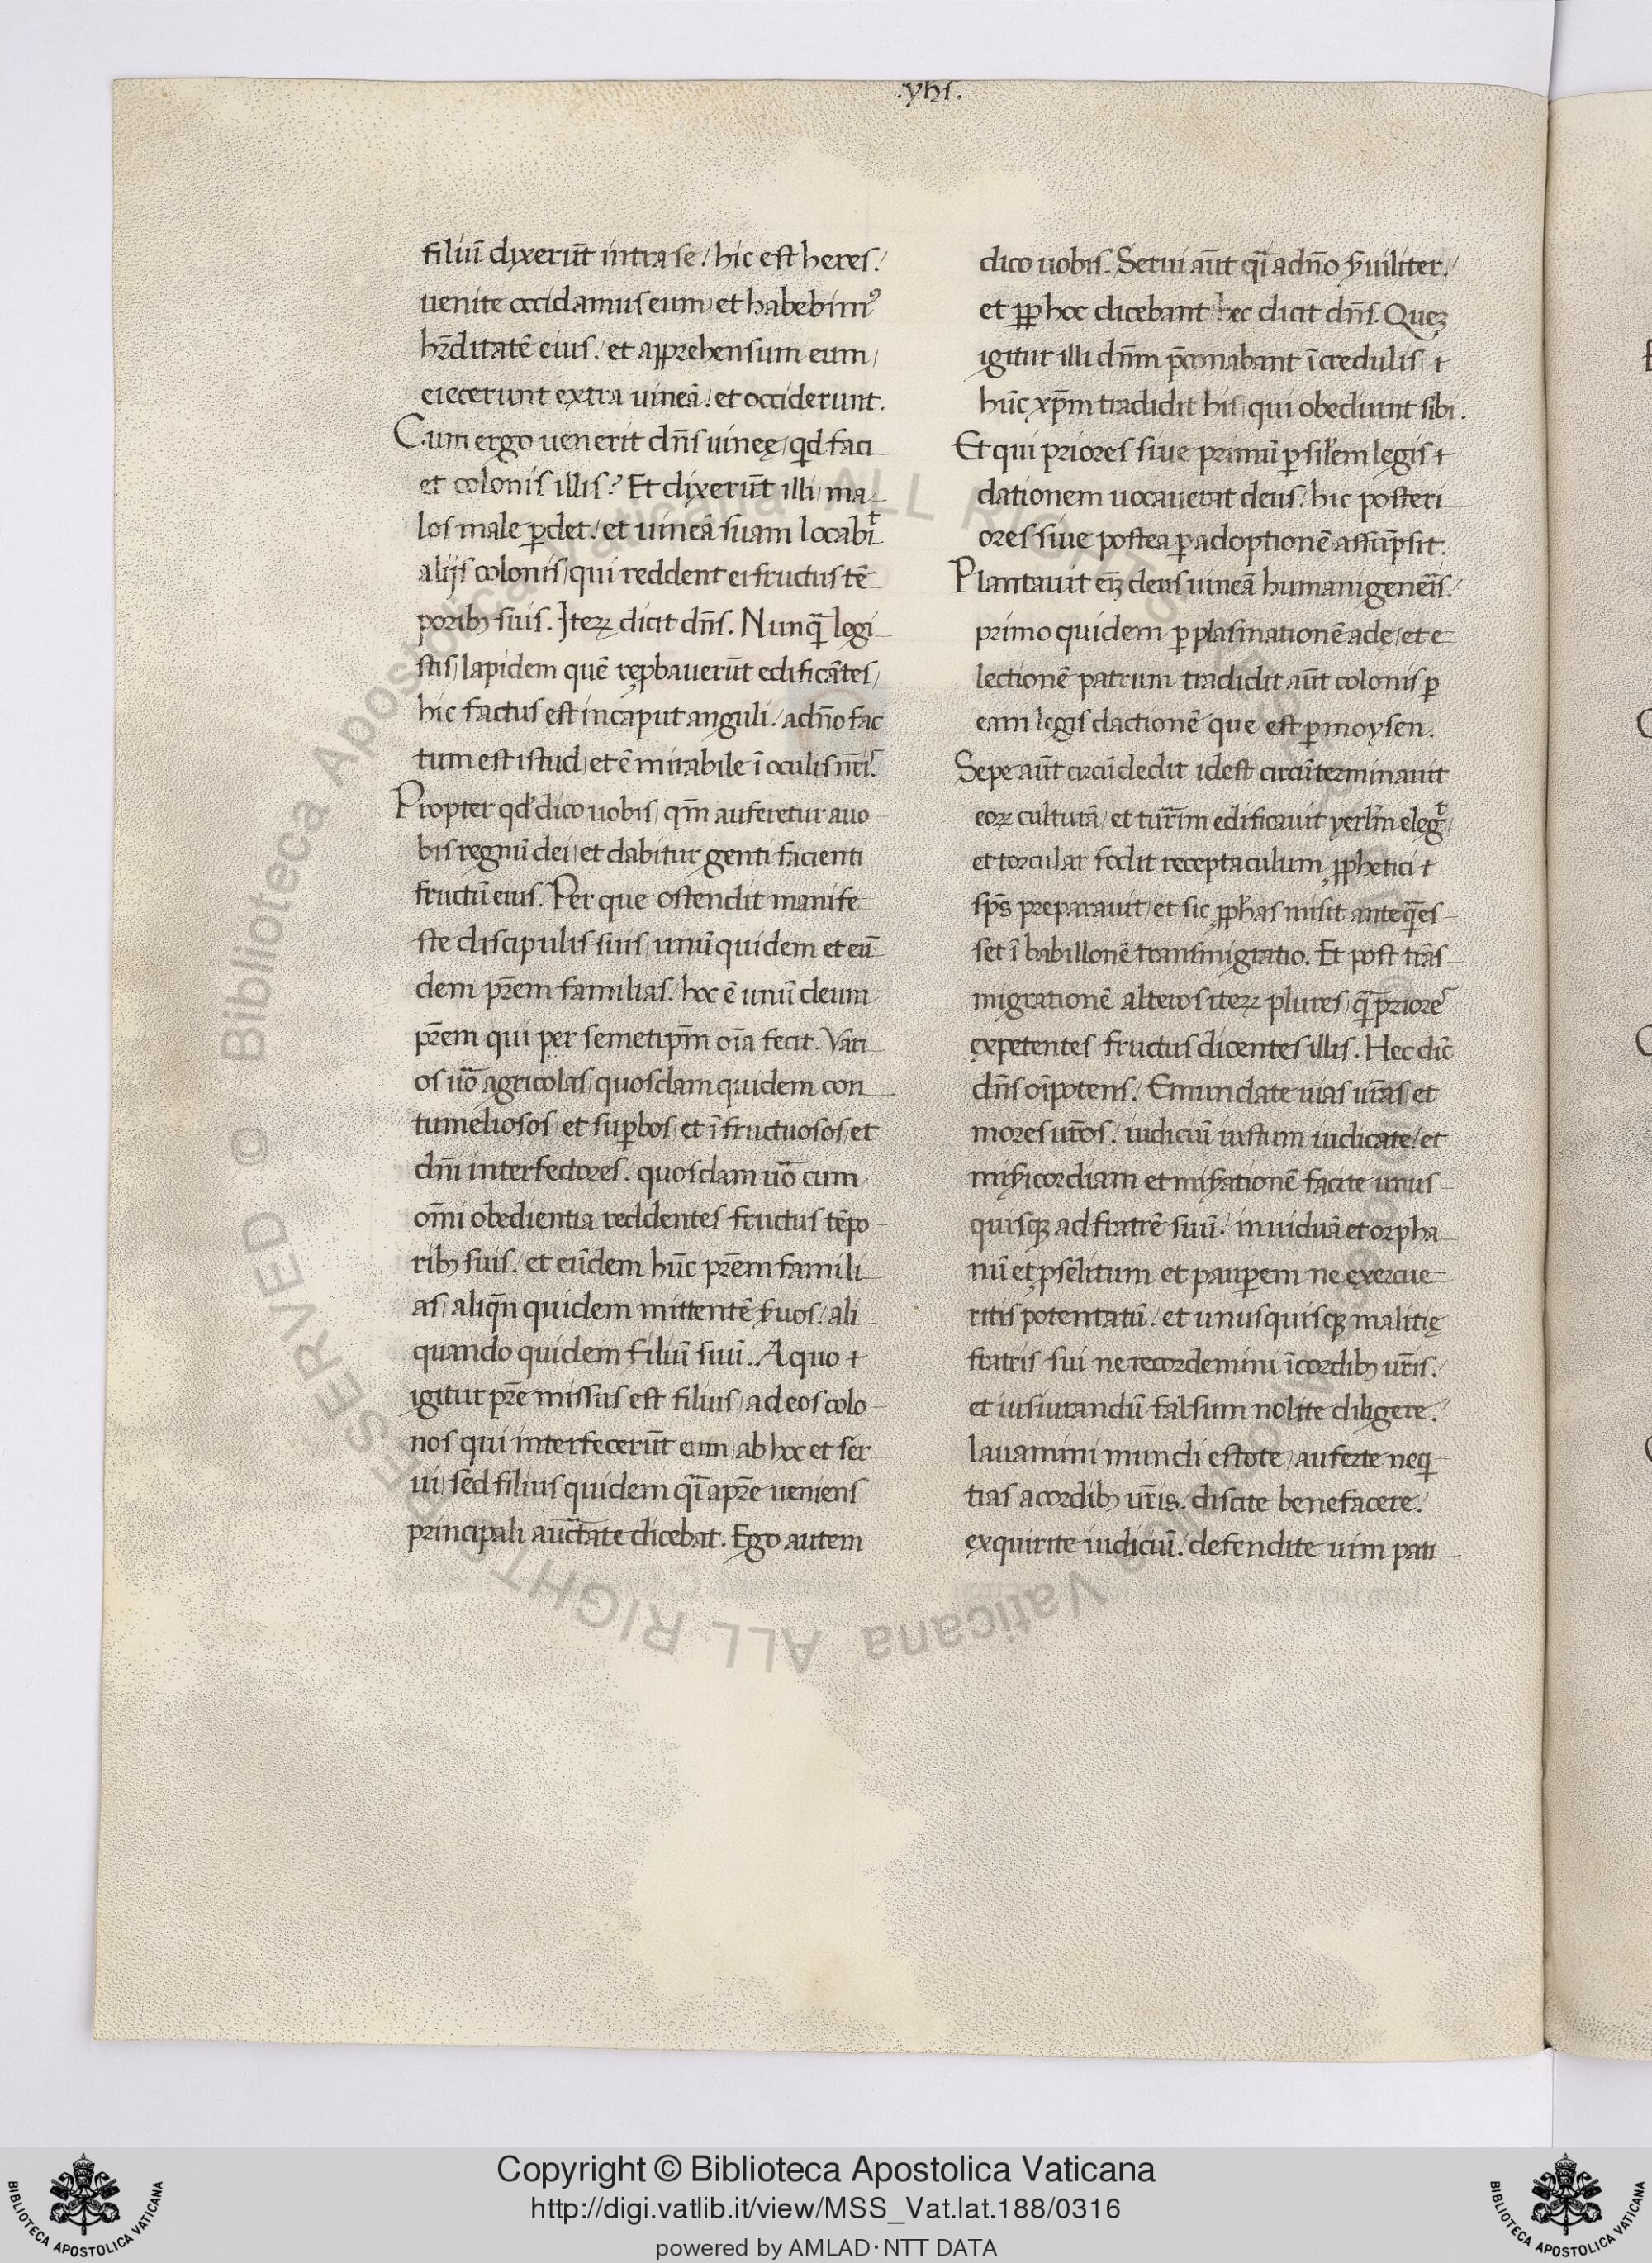 .yhs.
filiū dixerūt intra se / hic est heres /
uenite occidamus eum / et habebim᾿
hr̄ditatē eius / et apprehensum eum /
eiecerunt extra uineā / et occiderunt.
Cum ergo uenerit dn̄s uineę / qd faci
et colonis illis? Et dixerūt illi / ma
los male ꝑdet / et uineā suam locabiᵗ
alijs colonis / qui reddent ei fructus tē
poribꝫ suis. Iteꝝ dicit dn̄s. Nunq̄ legi
stis / lapidem quē reꝓbauerūt edificātes /
hic factus est in caput anguli / a dn̄o fac
tum est istud / et ē mirabile ī oculis nr̄is.
Propter qd dico uobis / qm̄ auferetur a uo
bis regnū dei / et dabitur genti facienti
fructū eius. Per que ostendit manife
ste discipulis suis / unū quidem et eū
dem pr̄em familias / hoc ē unū deum
pr̄em qui per semetipm̄ oīa fecit. Vari
os uō agricolas / quosdam quidem con
tumeliosos et suꝑbos et īfructuosos / et
dn̄i interfectores. quosdam uō cum
om̄i obedientia reddentes fructus tēpo
ribꝫ suis / et eūdem hūc pr̄em famili
as / aliqn̄ quidem mittentē ẜuos / ali
quando quidem filiū suū. A quo ⁊
igitur pr̄e missus est filius / ad eos colo
nos qui interfecerūt eum / ab hoc et ser
ui / sed filius quidem q̄i a pr̄e ueniens
principali auctāte dicebat. Ego autem
dico uobis. Serui aūt q̄i a dn̄o ẜuiliter /
et ꝓp hoc dicebant hec dicit dn̄s. Queꝫ
igitur illi dn̄m p̄conabant īcredulis / ⁊
hūc xp̄m tradidit his / qui obediunt sibi.
Et qui priores siue primū ꝑ sil̄em legis ⁊
dationem uocauerat deus / hic posteri
ores siue postea ꝑ adoptionē assūpsit.
Plantauit eṃ deus uineā humani genēis /
primo quidem ꝑ plasmationē adę / et e
lectionē patrum tradidit aūt colonis ꝑ
eam legis dactionē que est ꝑ moysen.
Sepe aūt circūdedit idest circūterminauit
eoꝝ culturā / et turr̄im edificauit yerlm̄ elegᵗ /
et torcular fodit receptaculum ꝓphetici ⁊
sp̄s preparauit / et sic ꝓphās misit anteq̄ es
set ī babillonē transmigratio. Et post trās
migrationē alteros iteꝝ plures / q̄ priores
expetentes fructus dicentes illis. Hec dic̄
dn̄s oīpotens / Emundate uias ur̄as et
mores ur̄os / iudiciū iustum iudicate / et
miẜicordiam et miẜationē facite unus
quisqꝫ ad fratrē suū / in uiduā et orpha
nū et ꝓselitum et pauꝑem ne exercue
ritis potentatū / et unusquisqꝫ malitię
fratris sui ne recordemini ī cordibꝫ ur̄is /
et iusiurandū falsum nolite diligere /
lauamini mundi estote / auferte neq
tias a cordibꝫ ur̄is. discite benefacere /
exquirite iudiciū / defendite uim pati
Copyright © Biblioteca Apostolica Vaticana
http://digi.vatlib.it/view/MSS_Vat.lat.188/0316
powered by AMLAD·NTT DATA
BIBLIOTECA APOSTOLICA VATICANA
BIBLIOTECA APOSTOLICA VATICANA